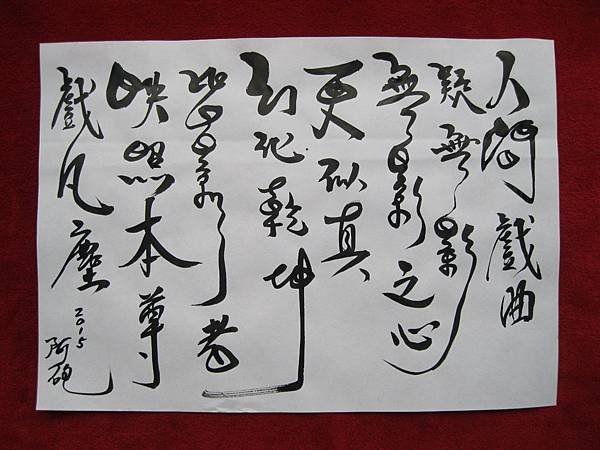 人間戲曲
疑無影
無影之心
更似真
幻化乾坤
皆影者
映照本尊
戲凡塵
2015
阿